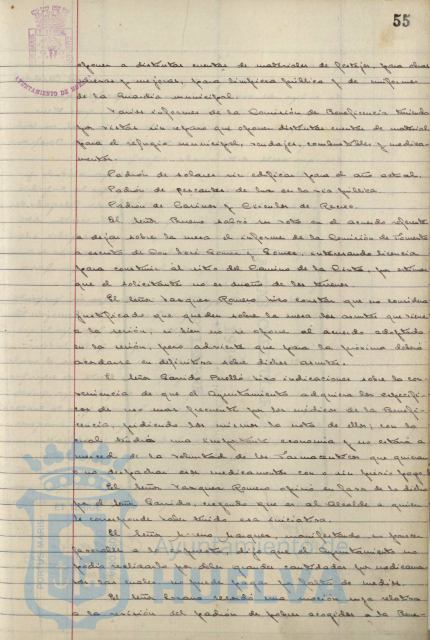 55
oponer a distintas cuentas de materiales de festejos, para obras
y mejoras, para limpieza pública y de uniformes
de la Guardia municipal.
Varios informes de la Comisión de Beneficencia
por vistas sin reparo que oponer distintas cuentas de material
para el refugio municipal, vendajes, combustibles y medica-
mentos.
Padrón de solares sin edificar para el año actual.
Padrón de pescantes de luz en la vía pública.
Padrón de Casinos y Círculos de Recreo.
El Señor Bueno salvó su voto en el acuerdo referente
a dejar sobre la mesa el informe de la Comisión de Fomento
a escrito de Don José Gómez y Gómez, interesando licencia
para construir al sitio del Camino de la Cinta, por estimar
que el solicitante no es dueño de los terrenos.
El Señor Vazquez Romero hizo constar que no considera
justificado que queden sobre la mesa los asuntos que vienen
a la sesión, si bien no se opone al acuerdo adoptado
en la sesión, pero advierte que para la próxima deberá
acordarse en definitiva sobre dichos asuntos.
El Señor Garrido Perelló hizo indicaciones sobre la con-
veniencia de que el Ayuntamiento adquiera los específi-
cos de uso mas frecuente por los médicos de la Benefi-
cencia, pidiendo los mismos la nota de ellos, con lo
cual tendría una importante economía y no estaría a
merced de la voluntad de los Farmacéuticos que quieran
o no despachar esos medicamentos con o sin previo pago.
El Señor Vazquez Romero opinó en favor de lo dicho
por el Señor Garrido, creyendo que es al Alcalde a quien
le corresponde haber tenido esa iniciativa.
El Señor manifestando su parecer
favorable a la propuesta el Ayuntamiento no
podía realizarlo por deber grandes cantidades por medicamen-
tos las cuales no puede pagar por falta de medios.
El Señor Lozano recordó una moción suya relativa
a la revisión del padrón de pobres acogidos a la Bene-
AYUNTAMIENTO DE
Ayuntamiento de
HUELVA